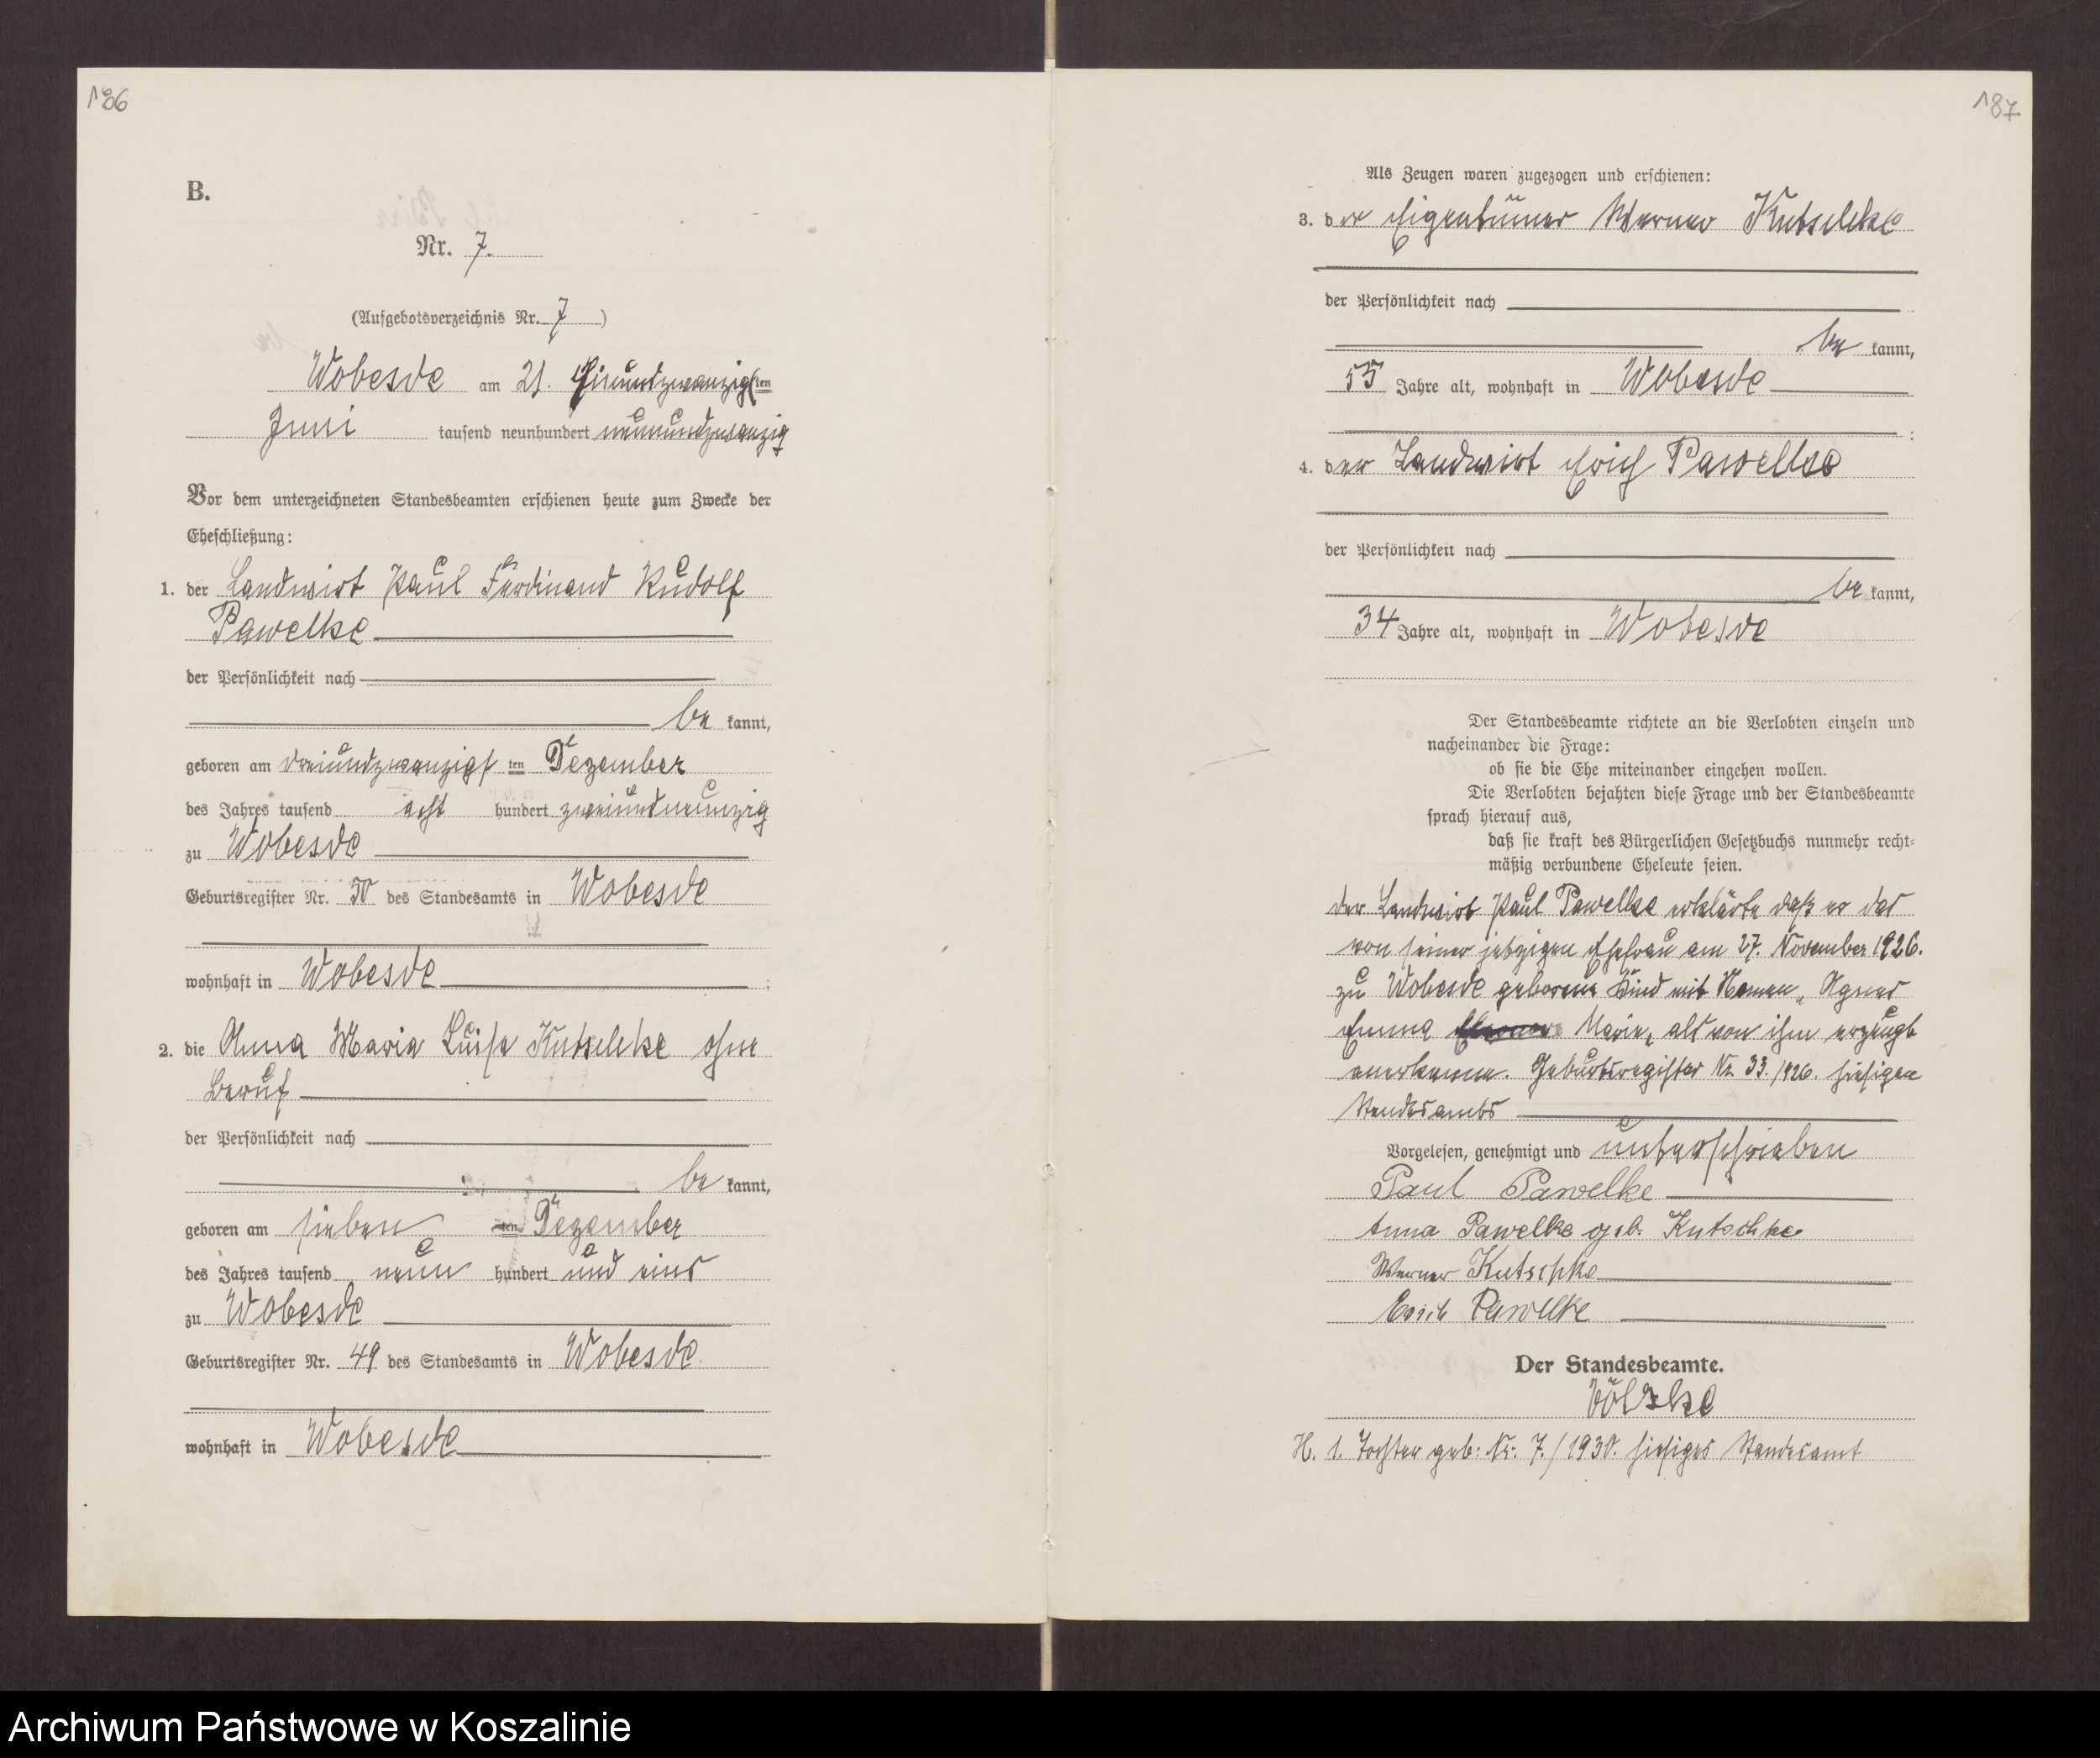 186
B.
Nr. 7.
(Aufgebotsverzeichnis Nr. 7)
Wobesde am 21. Einundzwanzigsten
Juni tausend neunhundert neunundzwanzig
Vor dem unterzeichneten Standesbeamten erschienen heute zum Zwecke der
Eheschließung:
1. der Landwirt Paul Ferdinand Rudolf
Pawelke
der Persönlichkeit nach
be kannt,
geboren am dreiundzwanzigsten Dezember
des Jahres tausend acht hundert zweiundneunzig
zu Wobesde
Geburtsregister Nr. 50 des Standesamts in Wobesde
wohnhaft in Wobesde;
2. die Anna Maria Luise Kutschke ohne
Beruf
der Persönlichkeit nach
be kannt,
geboren am sieben ten Dezember
des Jahres tausend neun hundert und eins
zu Wobesde
Geburtsregister Nr. 49 des Standesamts in Wobesde
wohnhaft in Wobesde
187
Als Zeugen waren zugezogen und erschienen:
3. der Eigentümer Werner Kutschke
der Persönlichkeit nach
be kannt,
55 Jahre alt, wohnhaft in Wobesde
;
4. der Landwirt Erich Pawelke
der Persönlichkeit nach
be kannt,
34 Jahre alt, wohnhaft in Wobesde
Der Standesbeamte richtete an die Verlobten einzeln und
nacheinander die Frage:
ob sie die Ehe miteinander eingehen wollen.
Die Verlobten bejahten diese Frage und der Standesbeamte
sprach hierauf aus,
daß sie kraft des Bürgerlichen Gesetzbuchs nunmehr recht-
mäßig verbundene Eheleute seien.
der Landwirt Paul Pawelke erklärte daß er das
von seiner jetzigen Ehefrau am 27. November 1926.
zu Wobesde geborene Kind mit Namen „Agnes
Emma Marie„ als von ihm erzeugt
anerkenne. Geburtsregister Nr. 33. 1926. hiesigen
Standesamts
Vorgelesen, genehmigt und unterschrieben
Paul Pawelke
Anna Pawelke geb. Kutschke
Werner Kutschke
Erich Pawelke
Der Standesbeamte.
Völzke
H. 1. Tochter geb: Nr. 7./1930. hiesiges Standesamt
Archiwum Państwowe w Koszalinie